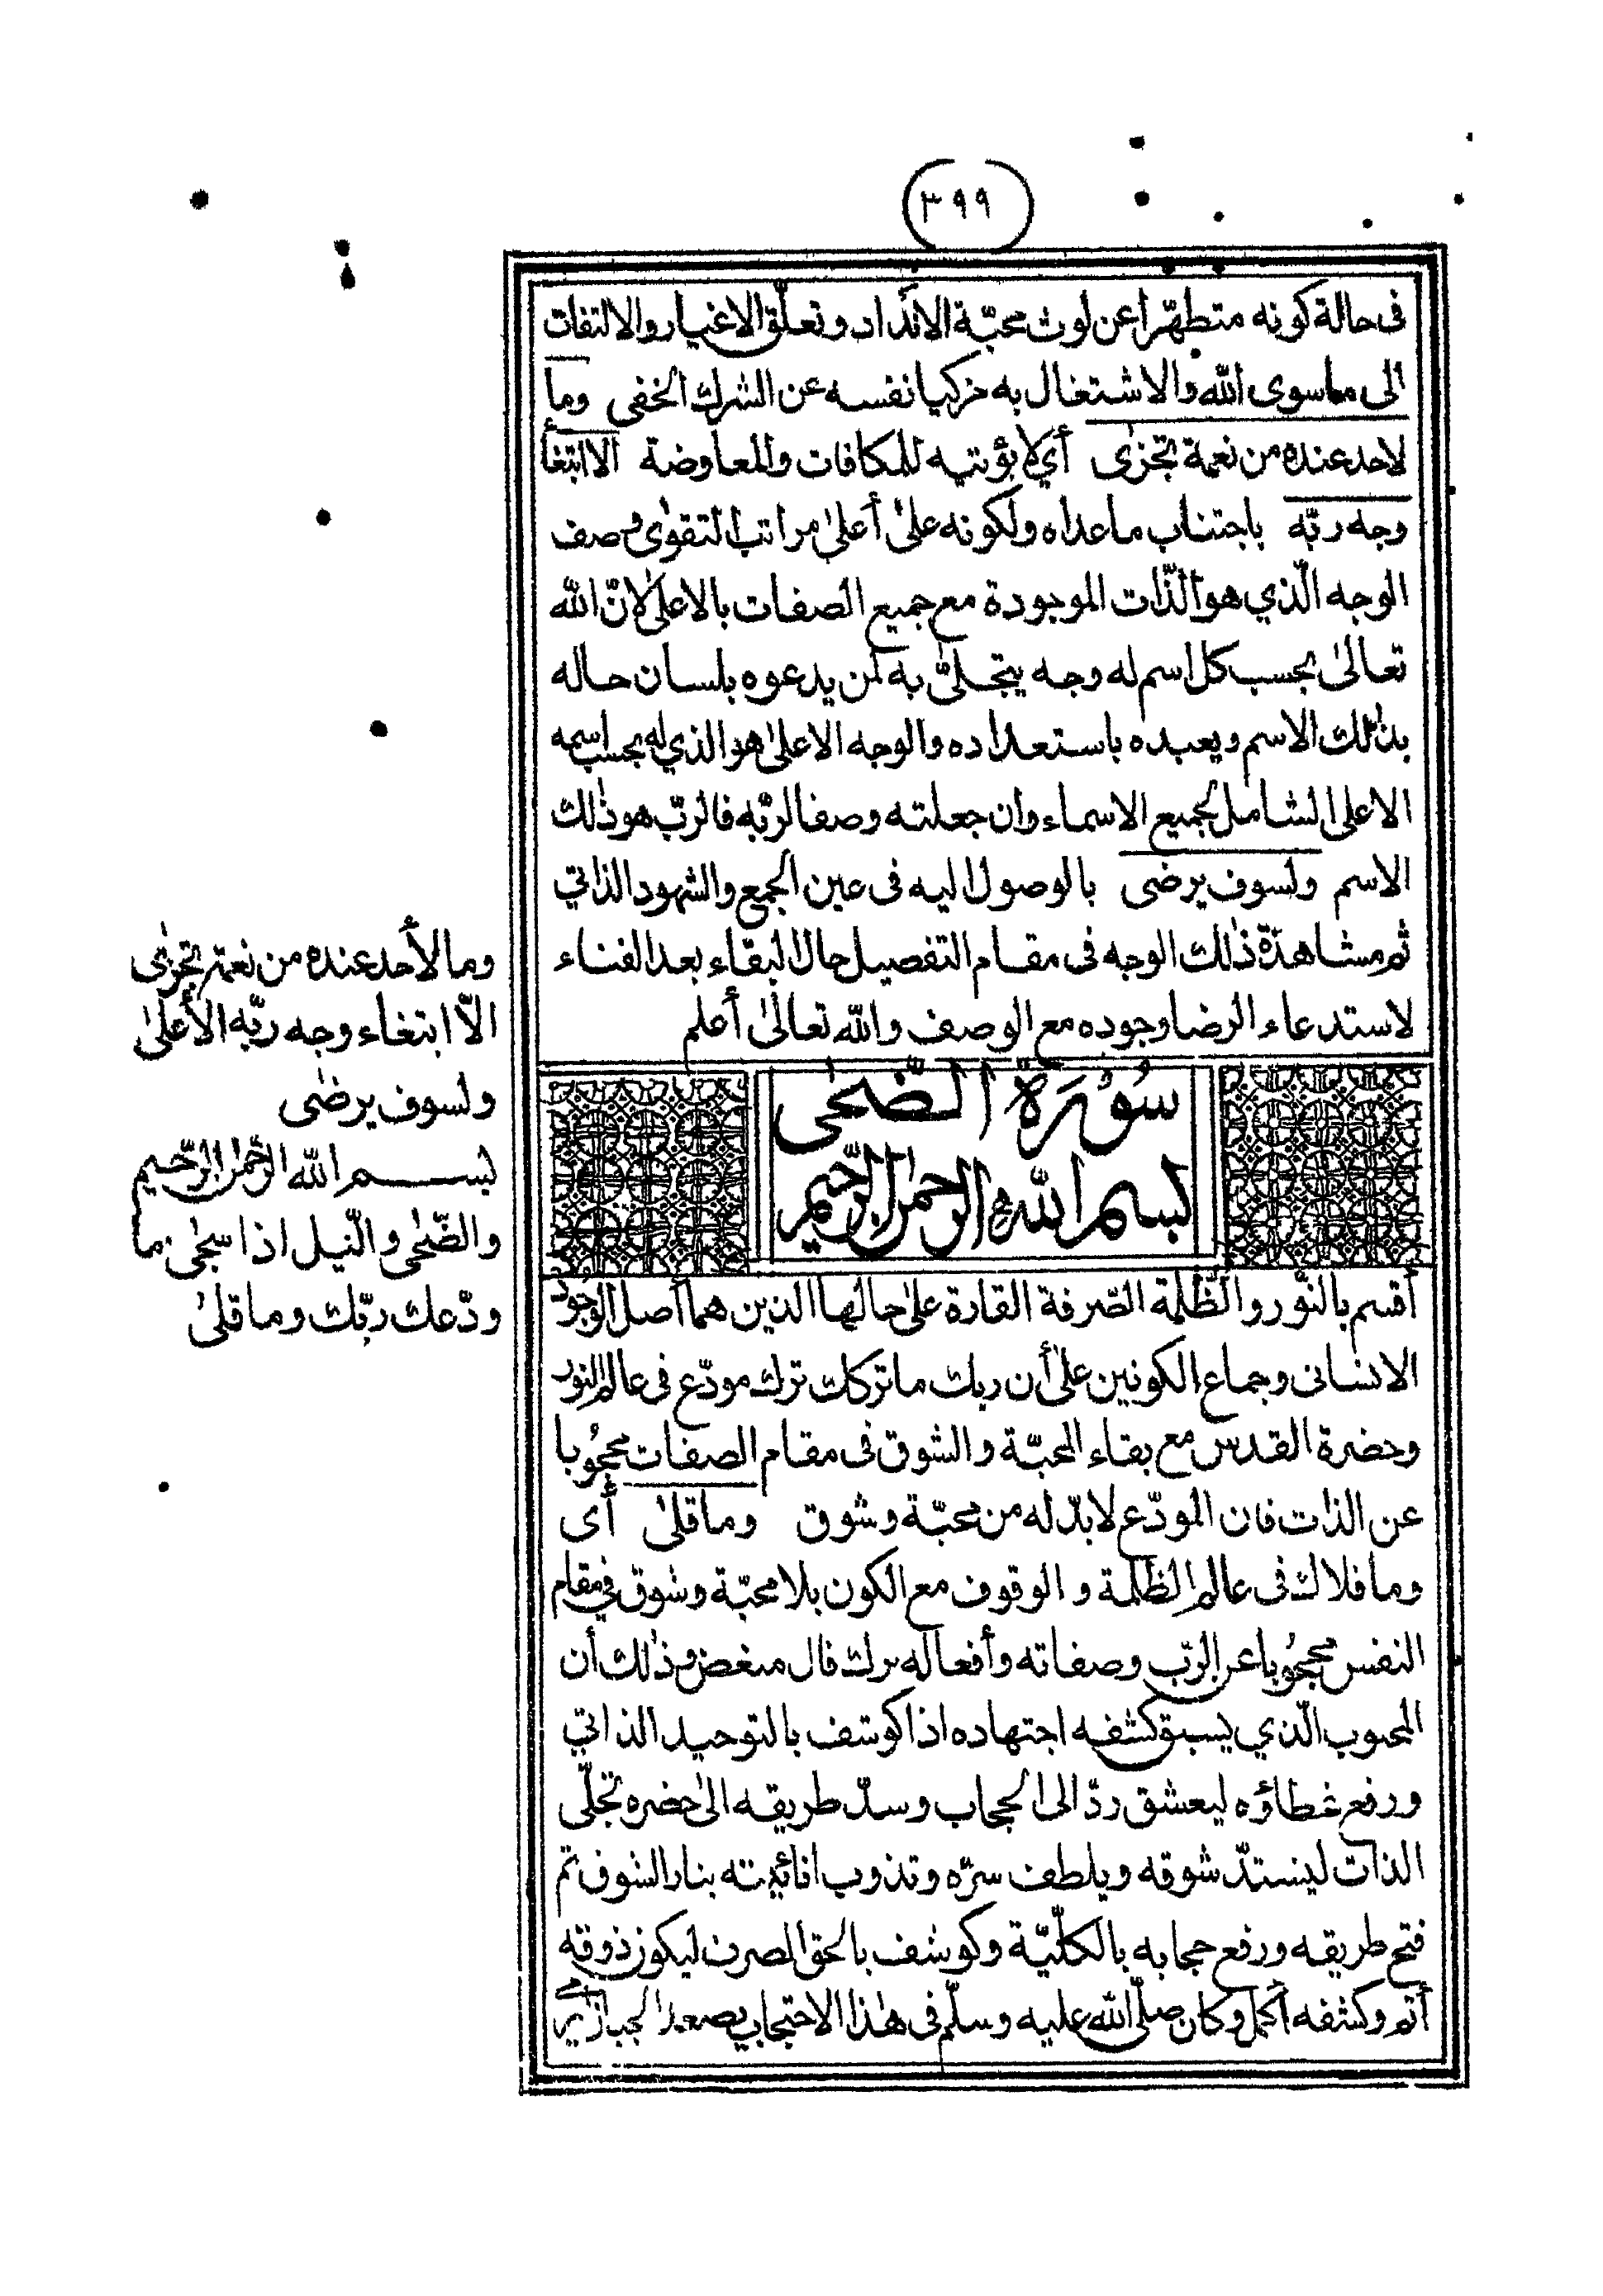 (٣٩٩)
فى حالة كونه متطهّرا عن لوث محبّة الانداد وتعلّق الاغيار والالتفات
الى ما سوى الله والاشتغال به مزكيا نفسه عن الشرك الخفى وما
لاحد عنده من نعمة تجزى أي لا يؤتيه للمكافات والمعاوضة الا ابتغا
وجه ربّه باجتناب ما عداه ولكونه على أعلى مراتب التقوى وصف
الوجه الّذي هو الذّات الموجودة مع جميع الصفات بالاعلى لانّ الله
تعالى بحسب كل اسم له وجه يتجلّى به لمن يدعوه بلسان حاله
بذلك الاسم ويعبده باستعداده والوجه الاعلى هو الذي له بحسب اسمه
الاعلى الشامل لجميع الاسماء وان جعلته وصفا لربّه فالربّ هو ذلك
الاسم ولسوف يرضى بالوصول اليه فى عين الجمع والشهود الذاتي
ثم مشاهدة ذلك الوجه فى مقام التفصيل حال البقاء بعد الفناء
لاستدعاء الرضا وجوده مع الوصف والله تعالى أعلم
سُورَة الضّحى
بسم الله الرحمن الرحيم
أقسم بالنّور والظّلمة الصّرفة القارة على حالها الذين هما أصل الوجود
الانسانى وجماع الكونين على أن ربك ما تركك ترك مودّع فى عالم النور
وحضرة القدس مع بقاء المحبّة والشوق فى مقام الصفات محجوُبا
عن الذات فان المودّع لا بدّ له من محبّة وشوق وما قلى أى
وما قلاك فى عالم الظلمة و الوقوف مع الكون بلا محبّة وشوق في مقام
النفس محجوُبا عن الربّ وصفاته وأفعاله ترك قال مبغض وذلك أن
المحبوب الّذي يسبق كشفه اجتهاده اذا كوشف بالتوحيد الذاتي
ورفع غطاؤه ليعشق ردّ الى الحجاب وسدّ طريقه الى حضره تجلّى
الذات ليشتدّ شوقه ويلطف سرّه وتذوب انائيته بنار الشوق ثم
فتح طريقه ورفع حجابه بالكلّيّة وكوشف بالحق الصرف ليكون ذوقه
أتم وكشفه أكمل وكان صلّى الله عليه وسلّم فى هذا الاحتجاب يصعد الجبال
وما لأحد عنده من نعمة تجزى
الاّ ابتغاء وجه ربّه الأعلى
ولسوف يرضى
بسم الله الرّحمن الرّحيم
والضّحى والّيل اذا سجى ما
ودّعك ربّك وما قلى